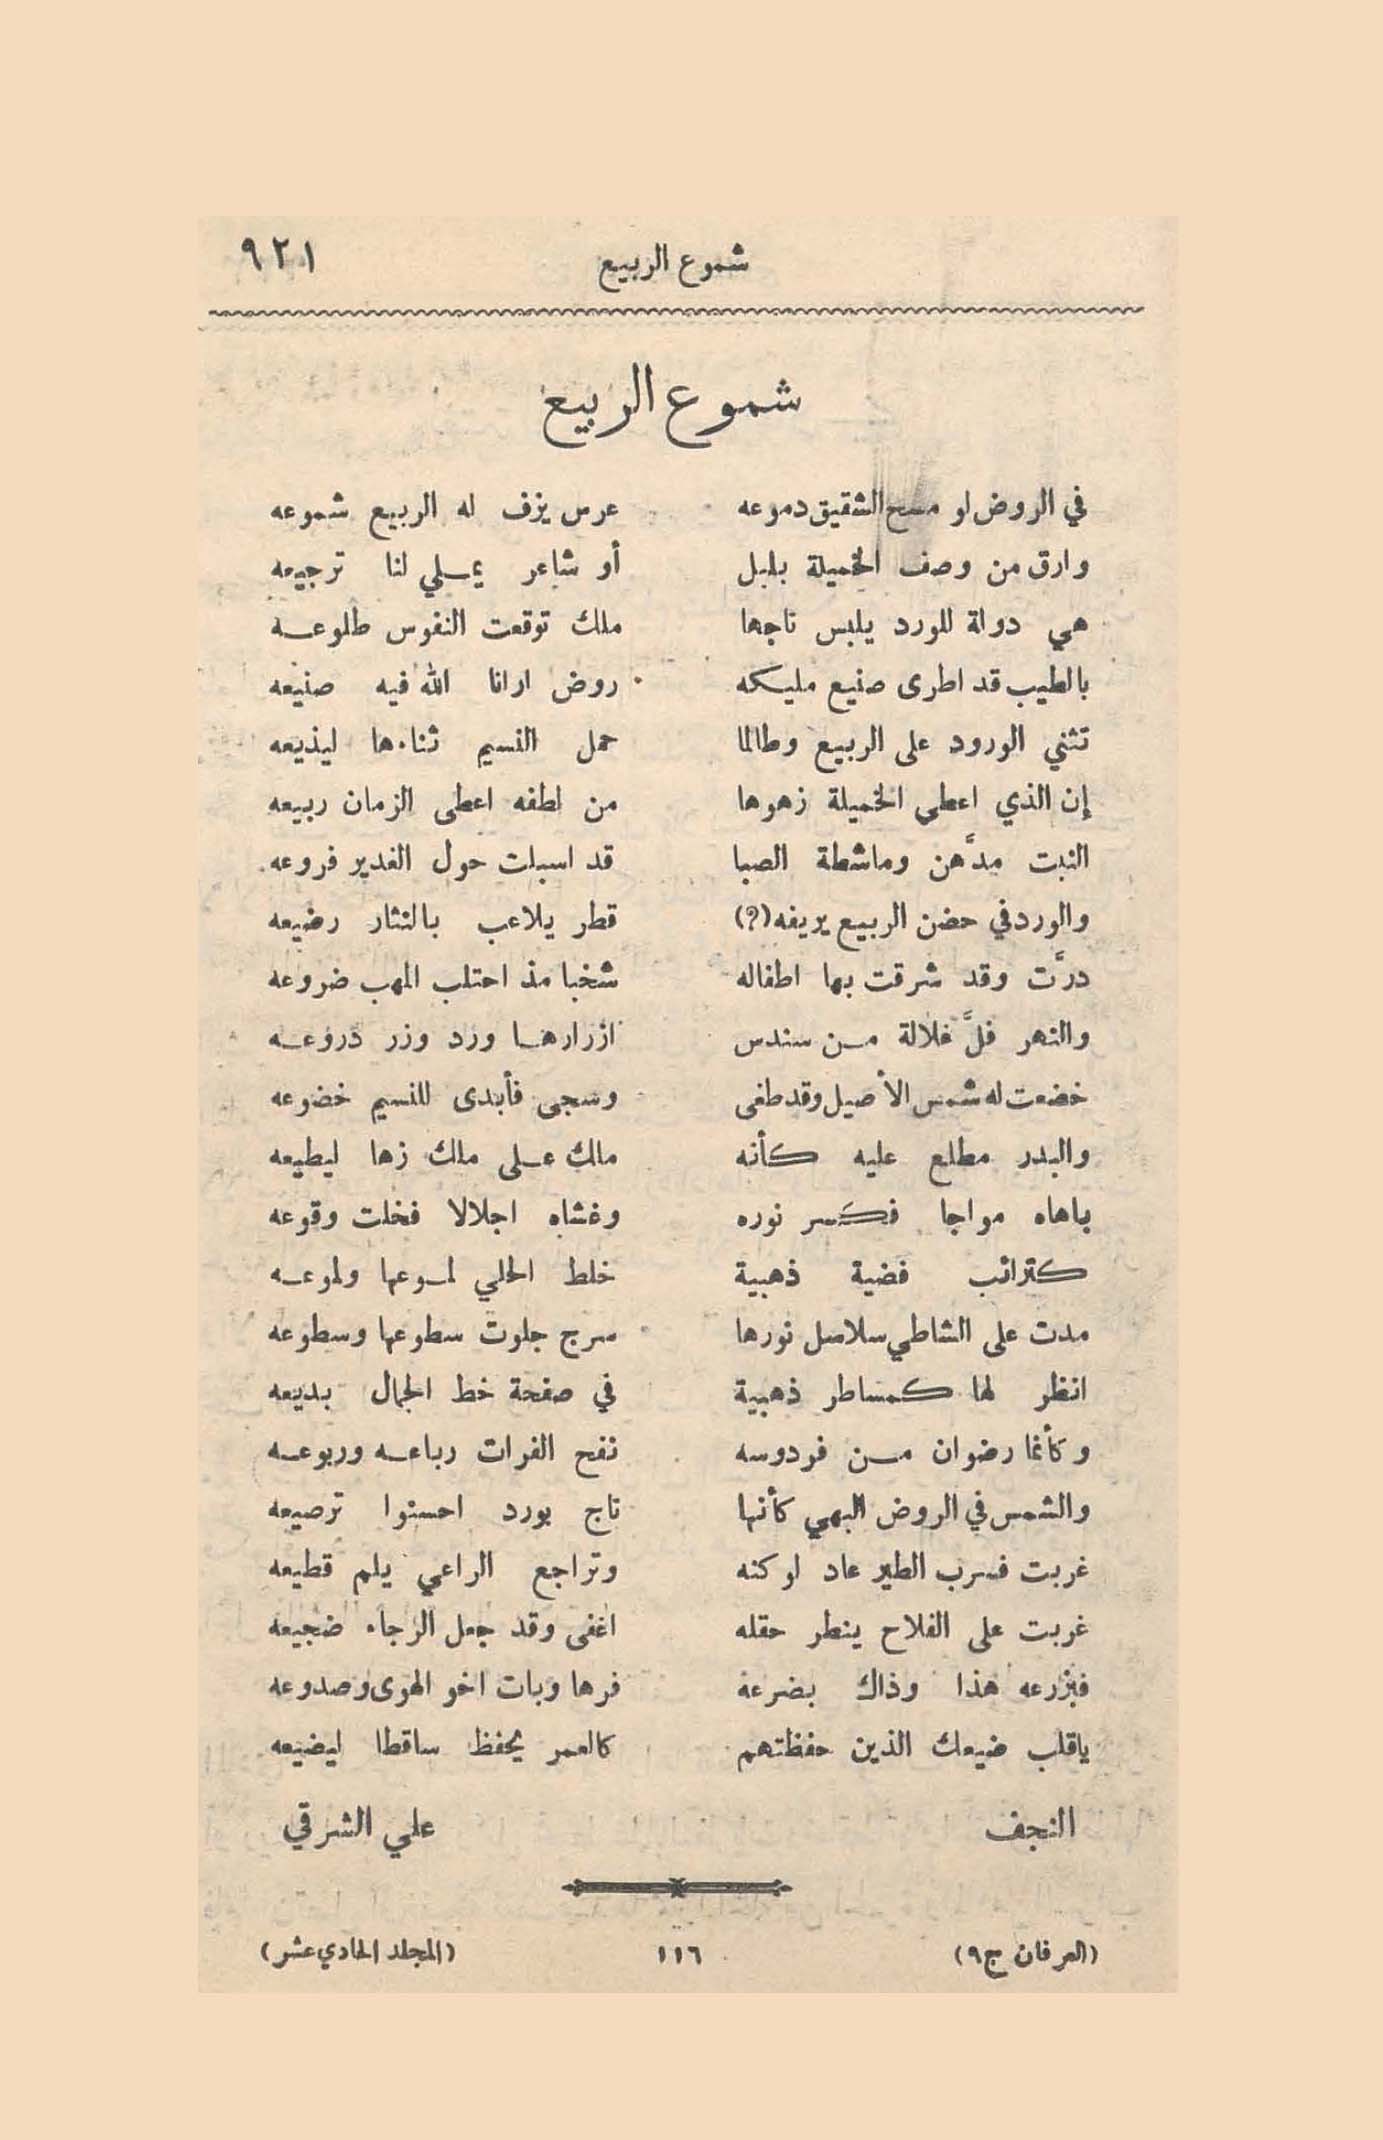 شموع الربيع ٩٢١
شموع الربيع
في الروض لو مسح الشقيق دموعه عرس يزف له الربيع شموعه
وارق من وصف الخميلة بلبل أو شاعر يملي لنا ترجيعه
هي دولة للورد يلبس تاجها ملك توقعت النفوس طلوعه
بالطيب قد اطرى صنيع مليكه روض ارانا الله فيه صنيعه
تثني الورود على الربيع وطالما حمل النسيم ثناءها ليذيعه
إن الذي اعطى الخميلة زهوها من لطفه اعطى الزمان ربيعه
النبت مدَّهن وماشطة الصبا قد اسبلت حول الغدير فروعه
والورد في حضن الربيع يريفه (؟) قطر يلاعب بالنثار رضيعه
درَّت وقد شرقت بها اطفاله شخبا مذ احتلب المهب ضروعه
والنهر فلَّ غلالة من سندس ازرارها ورد وزر دروعه
خضعت له شمس الأصيل وقد طغى وسجى فأبدى للنسيم خضوعه
والبدر مطلع عليه كأنه ملك على ملك زها ليطيعه
باهاه مواجا فكسر نوره وغشاه اجلالا فخلت وقوعه
كترائب فضية ذهبية خلط الحلي لموعها ولموعه
مدت على الشاطي سلاسل نورها سرج جلوت سطوعها وسطوعه
انظر لها كمساطر ذهبية في صفحة خط الجمال بديعه
وكأنما رضوان من فردوسه نفح الفرات رباعه وربوعه
والشمس في الروض البهي كأنها تاج بورد احسنوا ترصيعه
غربت فسرب الطير عاد لوكنه وتراجع الراعي يلم قطيعه
غربت على الفلاح ينطر حقله اغفى وقد جعل الرجاء ضجيعه
فبزرعه هذا وذاك بضرعه فرها وبات اخو الهوى وصدوعه
ياقلب ضيعك الذين حفظتهم كالعمر يحفظ ساقطا ليضيعه
النجف علي الشرقي
(العرفان ج٩) ١١٦ (المجلد الحادي عشر)